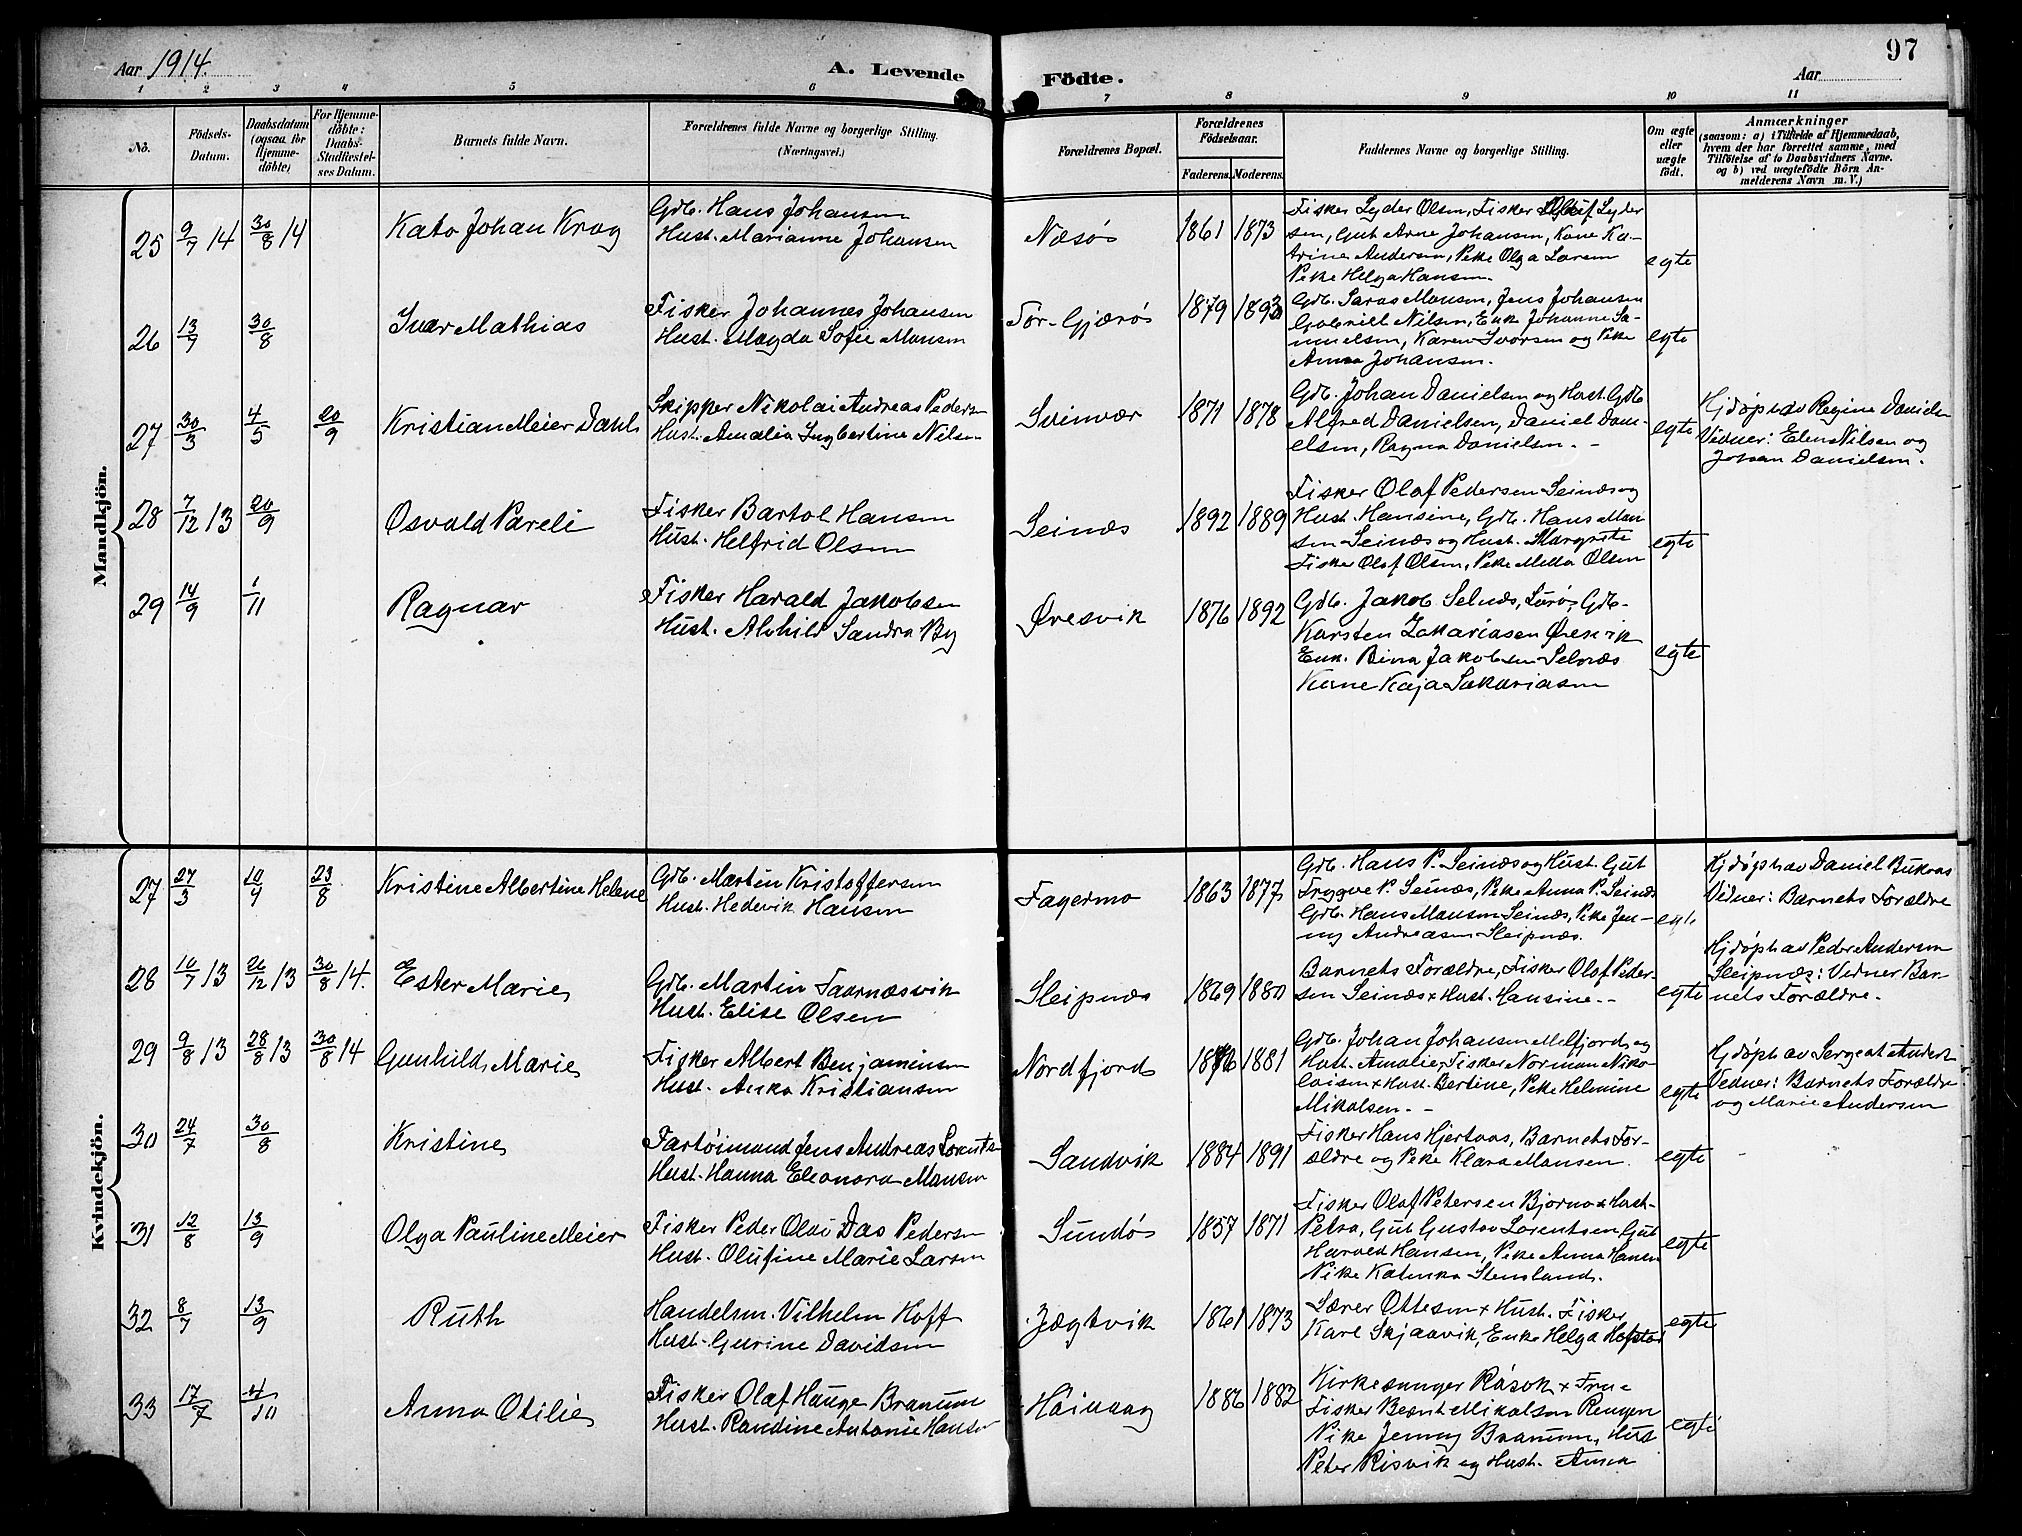 Aar 1914.
A. Levende Födte.
Aar
97
1 2 3 4 5 6 7 8 9 10 11
No.
Födsels-
Datum.
Daabsdatum
(ogsaa for
Hjemme-
döbte)
For Hjemme-
döbte:
Daabs-
Stadfæstel-
ses Datum.
Barnets fulde Navn.
Forældrenes fulde Navne og borgerlige Stilling.
(Næringsvei.)
Forældrenes Bopæl.
Forældrenes
Födselsaar.
Faderens. Moderens.
Faddernes Navne og borgerlige Stilling.
Om ægte
eller
uægte
födt.
Anmærkninger
(saasom: a) i Tilfælde af Hjemmedaab,
hvem der har forrettet samme, med
Tilföielse af to Daabsvidners Navne.
og b) ved uægtefödte Börn An-
melderens Navn m. V.)
Mandkjön.
25 9/7 14 30/8 14 Kato Johan Krog
Gdb. Hans Johansen
Hust. Marianne Johansen
Næsø 1861 1873
Fisker Lyder Olsen, Fisker Lyder
sen, Gut Arne Johansen, Kone Ka-
trine Andersen, Pike Olga Larsen
Pike Helga Hansen.
egte
26 13/7 30/8 Ivar Mathias
Fisker Johannes Johansen
Hust. Magda Sofie Mansen
Tør-Gjærø 1879 1893
Gdb. Saras Mansen, Jens Johansen
Gabriell Nilsen, Enk Johanne Sa-
muelsen, Karen Ivarsen og Pike
Anna Johansen.
egte
27 30/3 4/5 20/9 Kristian Meier Dahl
Skipper Nikolai Andreas Peders
Hust. Amalia Ingbertine Nilsen
Svinvær 1871 1878
Gdb. Johan Danielsen og Hust. Gdb
Alfred Danielsen, Daniel Dani-
elsen, Ragna Danielsen. -
egte
Hjdøpt av Regine Daniels
Vidner: Elen Nilsen og
Johan Danielsen.
28 7/12 13 20/9 Osvald Pareli
Fisker Bartol Hansen
Hust. Helfrid Olsen
Seinæs 1892 1889
Fisker Olaf Pedersen Seinæs og
Hust. Hansine, Gdb. Hans Man
sen Seinæs og Hust. Margrete
Fisker Olaf Olsen, Pike Milla Olsen
egte
29 14/9 1/11 Ragnar
Fisker Harald Jakobsen
Hust. Alvhild Sandra By
Øresvik 1876 1892
Gdb. Jakob Selnæs, Lurø, Gdb.
Karsten Zakariasen Øresvik
Enk. Bina Jakobsen Selnæs
Kone Kaja Sakariasen
egte
Kvindekjön.
27 27/3 10/4 23/8 Kristine Albertine Helene
Gdb. Martin Kristoffersen
Hust. Hedevik Hansen
Fagermo 1863 1877
Gdb. Hans P. Seinæs og Hust. Gut
Tryggve P. Seinæs, Pike Anna P. Seinæs
Gdb. Hans Mansen Seinæs, Pike Jen-
ny Andreasen Sleipnæs.
egte
Hjdøpt av Daniel Buknas
Vidner: Barnets Forældre
28 10/7 13 26/12 13 30/8 14. Ester Marie
Gdb. Martin Taarnæsvik
Hust. Elise Olsen
Sleipnæs 1869 1880
Barnets Forældre, Fisker Olaf Peder-
sen Seinæs + Hust. Hansine. -
egte
Hjdøpt av Peder Andersen
Sleipnæs: Vidner Bar-
nets Forældre.
29 9/8 13 28/8 13 30/8 14 Gunhild Marie
Fisker Albert Benjaminsen
Hust. Anka Kristiansen
Nordfjord 1876 1881
Gdb. Johan Johansen Melfjord, og
Hust. Amalie, Fisker Norman Niko-
laisen + Hust. Bertine, Pike Helmine
Mikalsen. -
egte
Hjdøpt av Sergeat Anders
Vidner: Barnets Forældre
og Marie Andersen
30 24/7 30/8 Kristine
Fartøimand Jens Andreas Lorents
Hust. Hanna Eleonora Mansen
Sandvik 1884 1891
Fisker Hans Hjertaas, Barnets For-
ældre og Pike Klara Mansen.
egte
31 12/8 13/9 Olga Pauline Meier
Fisker Peder Olai Das Pedersen
Hust. Olufine Marie Larsen
Sundø 1857 1871
Fisker Olaf Petersen Bjørnø + Hust-
Petra, Gut Gustav Lorentsen, Gut
Harald Hansen, Pike Anna Hansen
Pike Katinka Stensland.
egte
32 8/7 13/9 Ruth
Handelsm. Vilhelm Hoff
Hust. Gurine Davidsen
Jægtvik 1861 1873
Lærer Ottesen + Hust. Fisker
Karl Skjaavik, Enke Helga Hofstad
egte
33 17/7 4/10 Anna Otilie
Fisker Olaf Hauge Branum
Hust. Randine Antonie Hansen
Høivaag 1886 1882
Kirkesanger Råsok + Frue
Fisker Beent Mikalsen Rengen
Pike Jenny Branum, Hust
Peter Risvik og Hust. Anna
egte